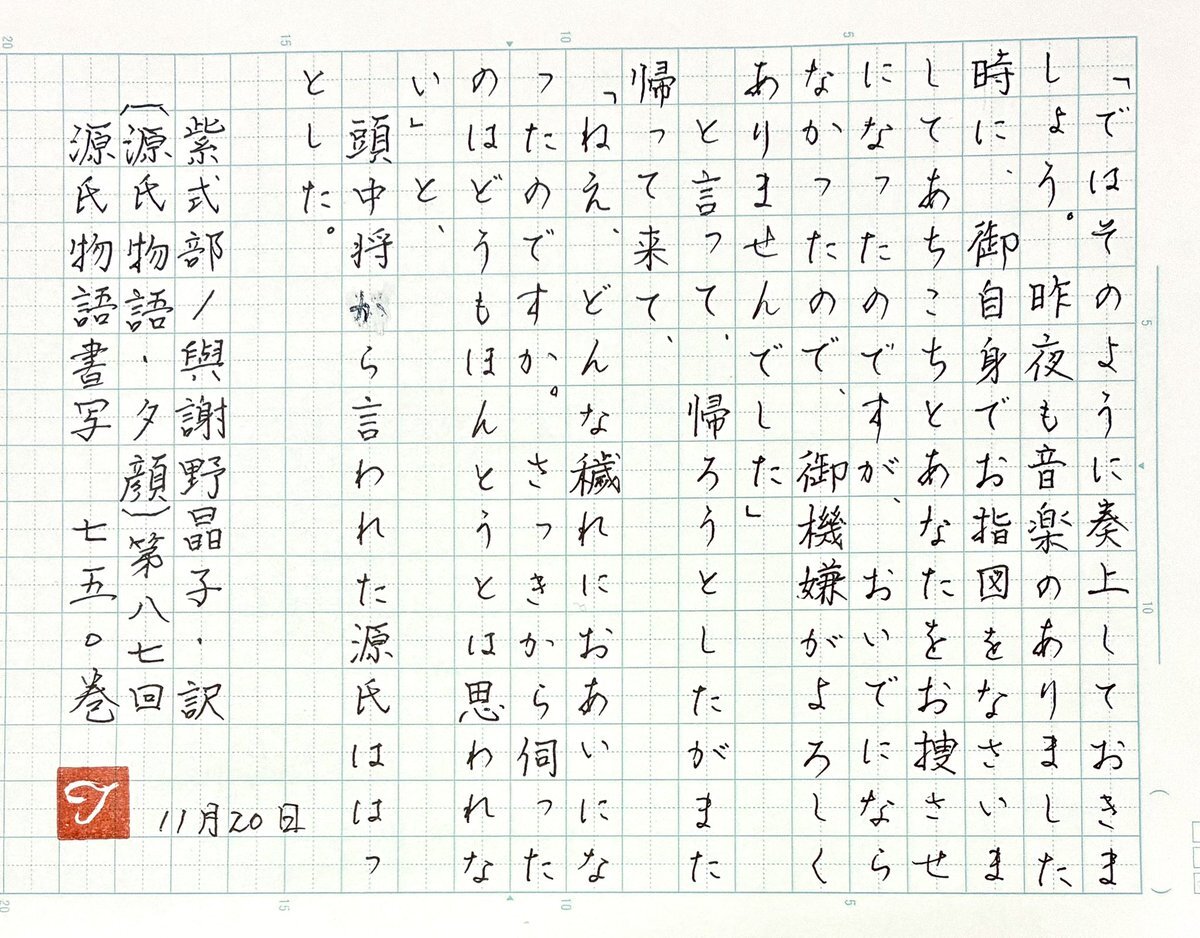 「ではそのように奏上しておきま
しょう。昨夜も音楽のありました
時に、御自身でお指図をなさいま
してあちこちとあなたをお捜させ
になったのですが、おいでにならな
なかったので、御機嫌がよろしく
ありませんでした」
と言って、帰ろうとしたがまた
帰って来て、
「ねえ、どんな穢れにおあいにな
ったのですか。さっきから伺った
のはどうもほんとうとは思われな
い」と、
頭中将から言われた源氏ははっ
とした。
紫式部/與謝野晶子・訳
(源氏物語・夕顔)第八七回
源氏物語書写 七五〇巻
11月20日
5
10
15
20
5
10
15
20
5
10